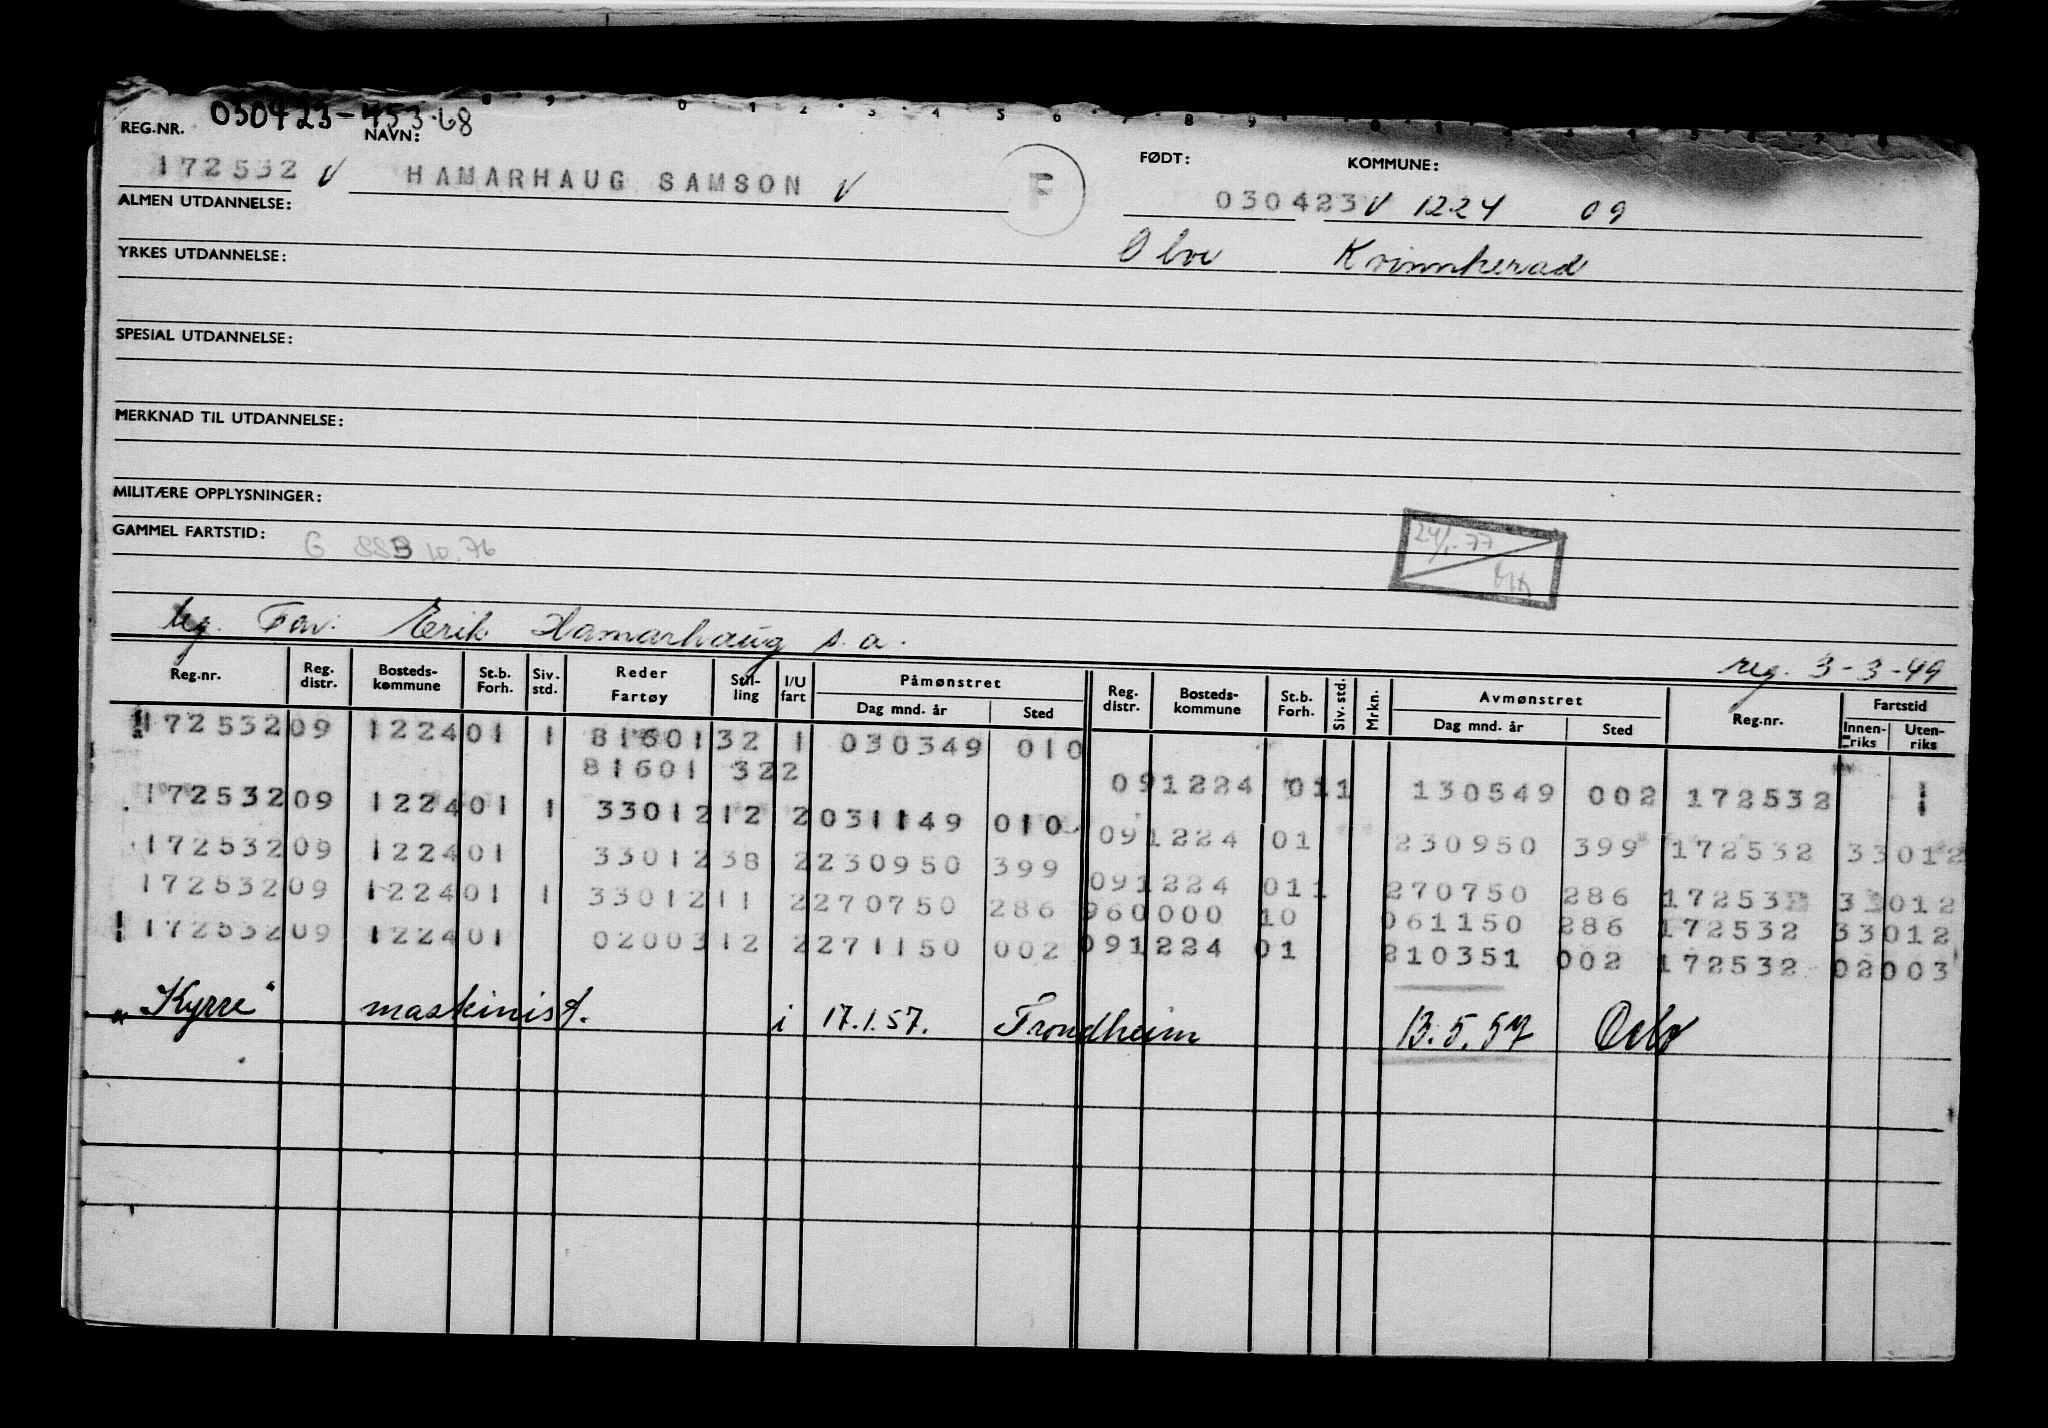 030423-453.68
REG.NR. NAVN: FØDT: KOMMUNE:
172532 V HAMARHAUG SAMSON V F 030423 V 1224 09
ALMEN UTDANNELSE:
Olve Kvinnherad
YRKES UTDANNELSE:
SPESIAL UTDANNELSE:
MERKNAD TIL UTDANNELSE:
MILITÆRE OPPLYSNINGER:
GAMMEL FARTSTID: G SSB 10.76
24/1-77
Far: Erik Hamarhaug s.a.
reg. 3-3-49
Reg.nr. Reg. distr. Bosteds-kommune St.b. Forh. Siv. std. Reder Fartøy Stil-ling I/U fart Påmønstret Dag mnd. år Sted Reg. distr. Bosteds-kommune St.b. Forh. Siv. std. Mrkn. Avmønstret Dag mnd. år Sted Reg.nr. Fartstid Innen-riks Uten-riks
172532 09 1224 01 1 81601 32 1 030349 010
81601 32 2 09 1224 01 1 130549 002 172532 1
172532 09 1224 01 1 33012 12 2 031149 010 09 1224 01 230950 399 172532 33012
172532 09 1224 01 33012 38 2 230950 399 09 1224 01 1 270750 286 172532 33012
172532 09 1224 01 1 33012 11 2 270750 286 960000 10 061150 286 172532 33012
172532 09 1224 01 02003 12 2 271150 002 09 1224 01 210351 002 172532 02003
"Kyrre" maskinist. i 17.1.57. Trondheim 13.5.57 Oslo